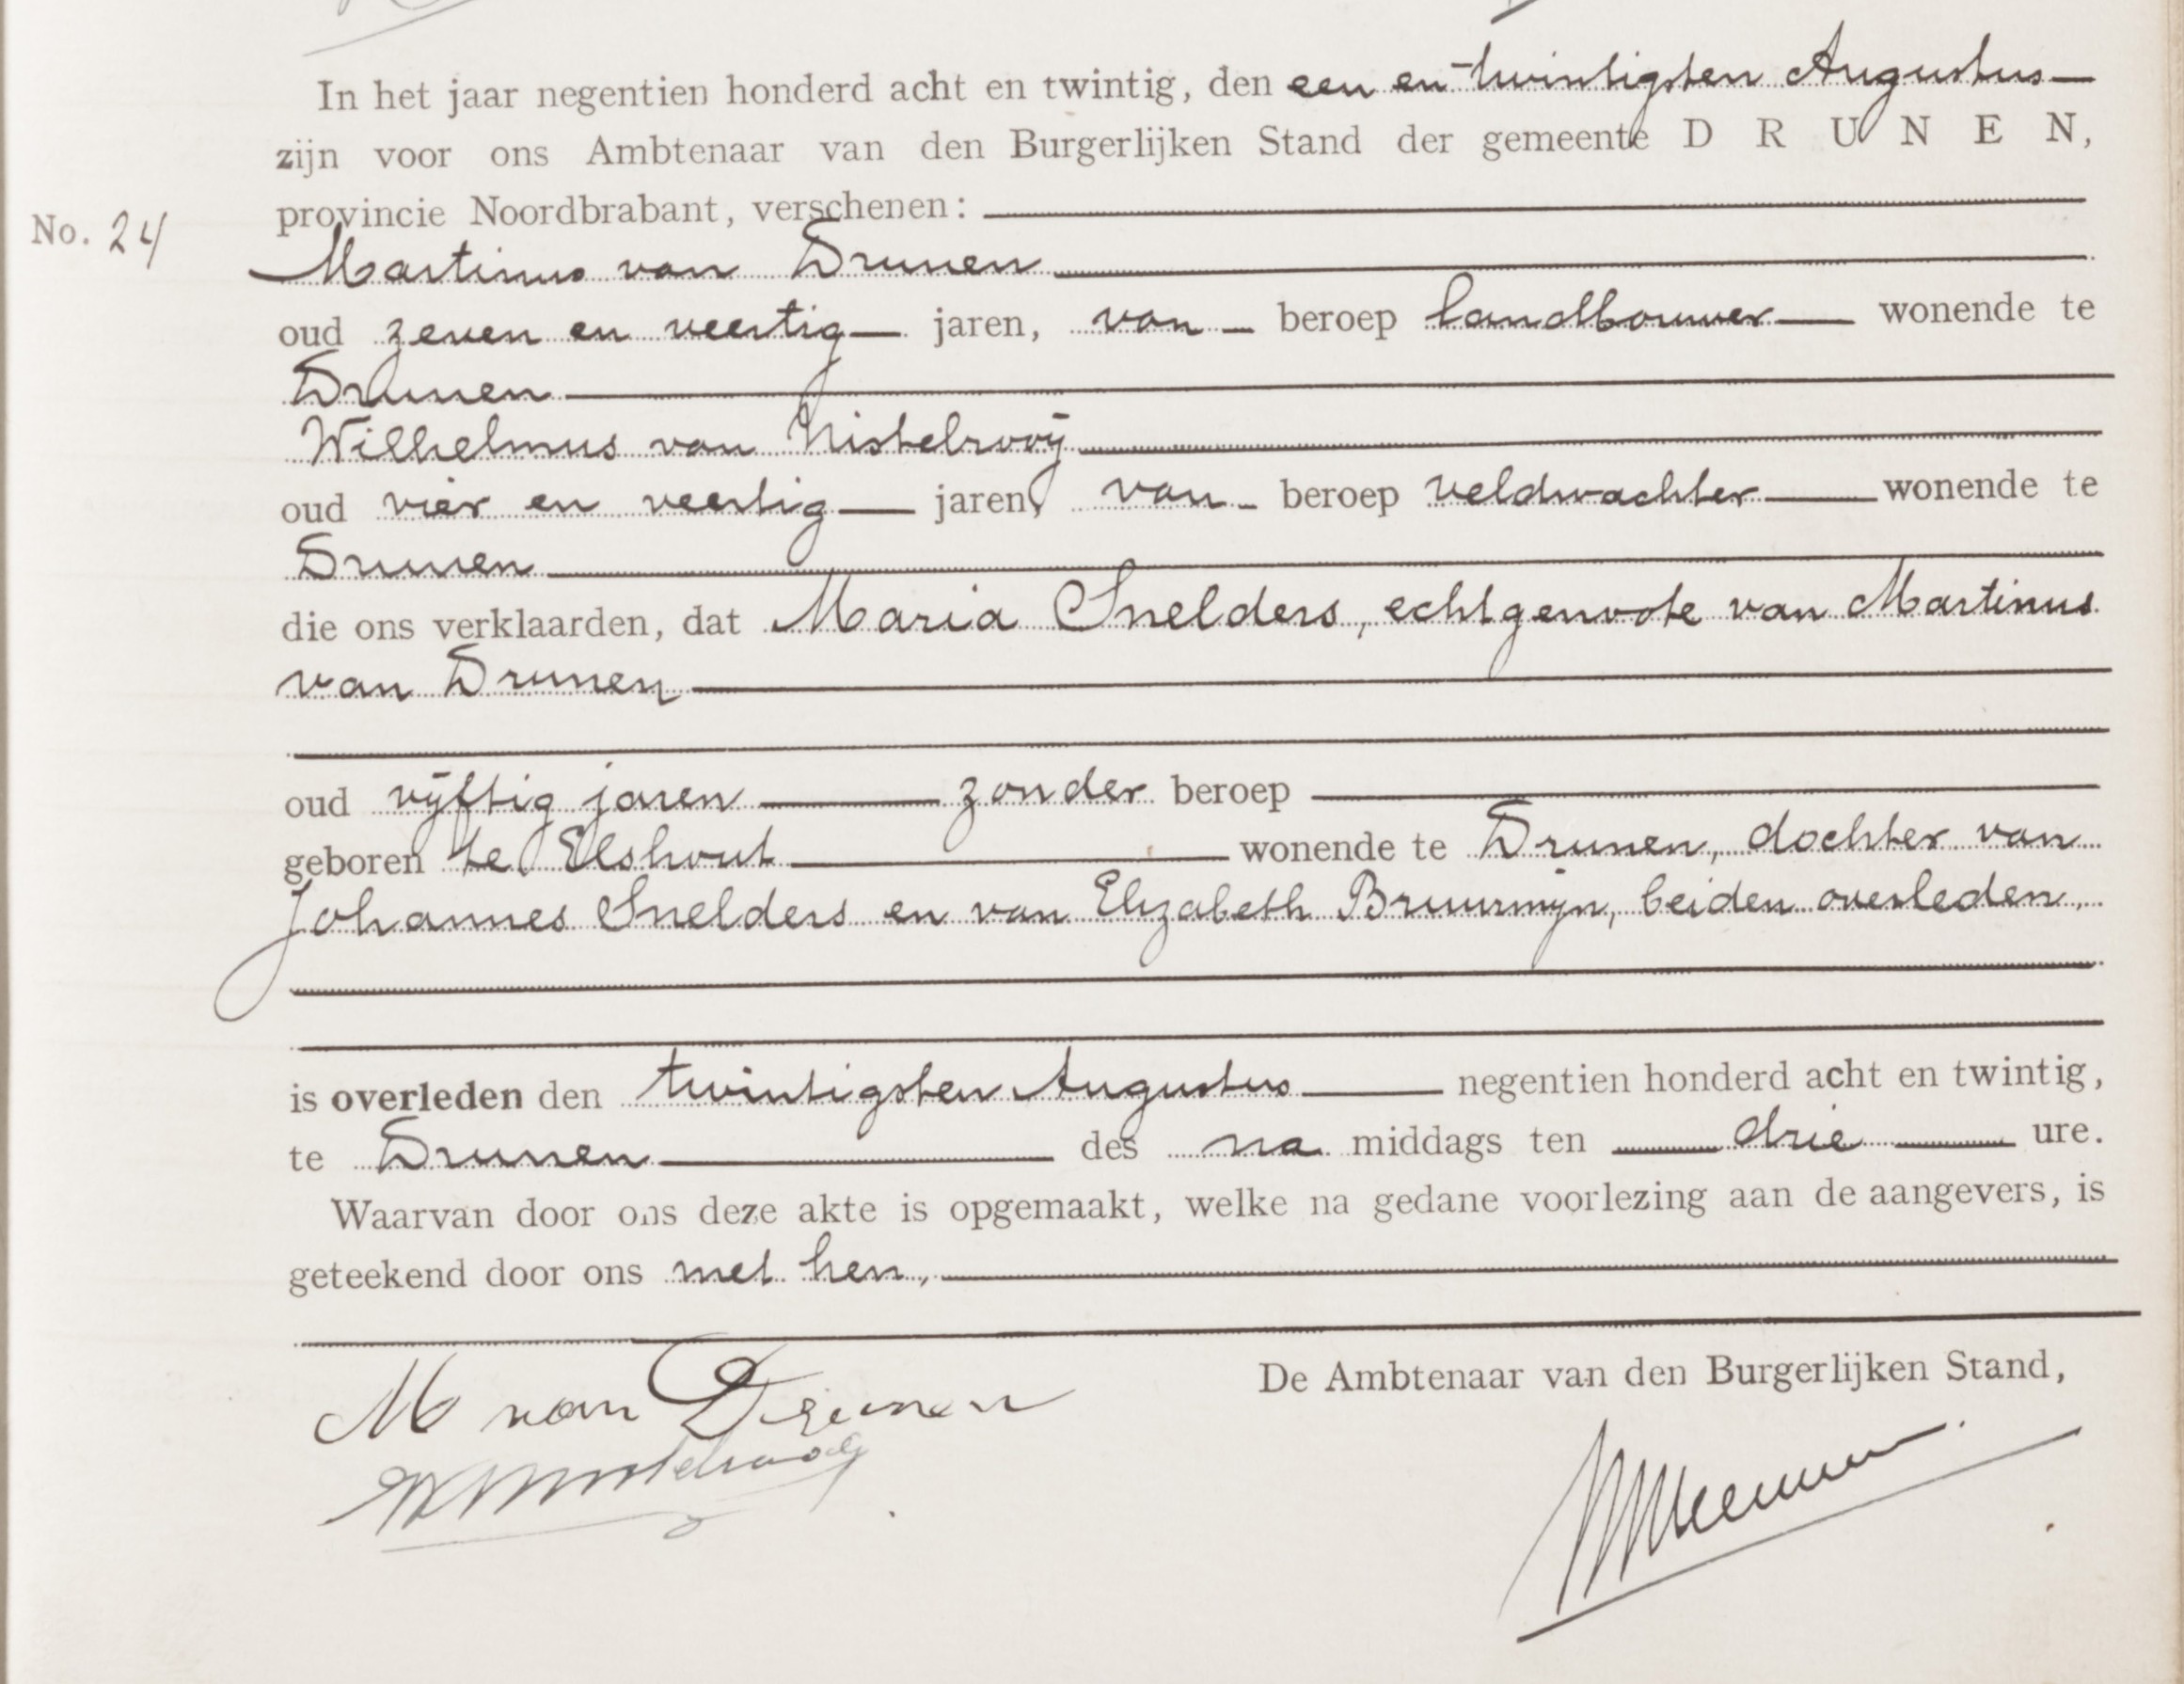 In het jaar negentien honderd acht en twintig, den een en twintigsten Augustus
zijn voor ons Ambtenaar van den Burgerlijken Stand der gemeente D R U N E N,
provincie Noordbrabant, verschenen:
No. 24
Martinus van Drunen
oud zeven en veertig jaren, van beroep landbouwer wonende te
Drunen
Wilhelmus van Nistelrooij
oud vier en veertig jaren, van beroep veldwachter wonende te
Drunen
die ons verklaarden, dat Maria Snelders, echtgenoote van Martinus
van Drunen
oud vijftig jaren zonder beroep
geboren te Elshout wonende te Drunen, dochter van
Johannes Snelders en van Elizabeth Bruurmijn, beiden overleden,
is overleden den twintigsten Augustus negentien honderd acht en twintig,
te Drunen des na middags ten drie ure.
Waarvan door ons deze akte is opgemaakt, welke na gedane voorlezing aan de aangevers, is
geteekend door ons met hen,
De Ambtenaar van den Burgerlijken Stand,
M van Drunen